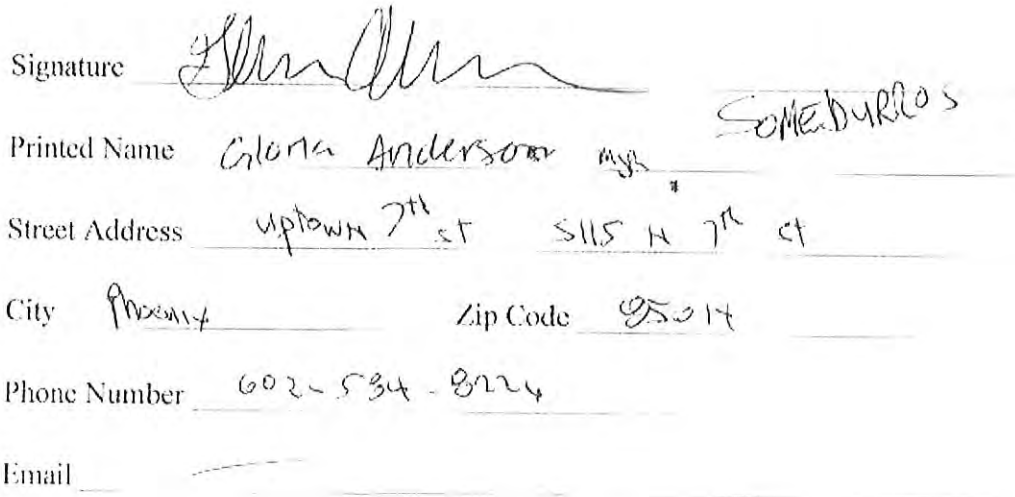 Signature
SOMEBURROS
Printed Name Gloria Anderson Mgr
Street Address uptown 7th st 5115 N 7th st
City Phoenix Zip Code 85014
Phone Number 602-534-8224
Email